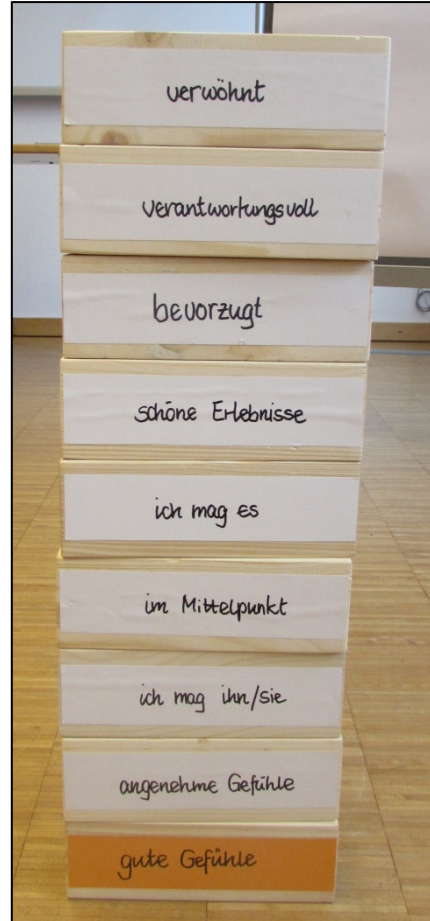 verwöhnt
verantwortungsvoll
bevorzugt
schöne Erlebnisse
ich mag es
im Mittelpunkt
ich mag ihn/sie
angenehme Gefühle
gute Gefühle